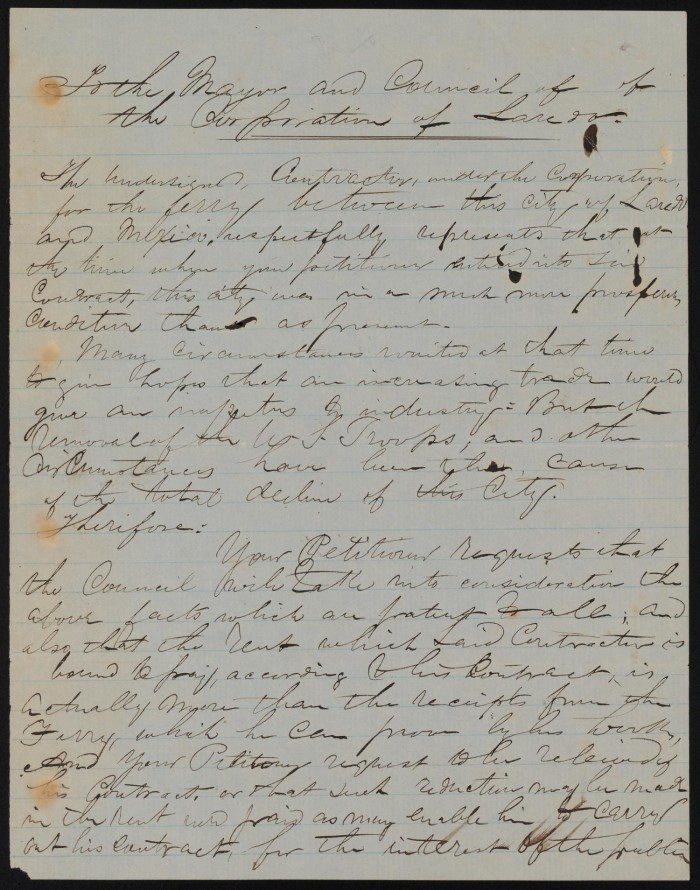 To the Mayor and Council of of
the Corporation of Laredo =
The Undersigned, Contractor, under the Corporation,
for the ferry between this city of Laredo
and Mexico, respectfully represents that at
the time when your petitioner entered into said
Contract, this city was in a much more prosperous
Condition than as present.
Many circumstances united at that time
to give hopes that an increasing trade would
give an impetus to industry = But the
removal of the U. S. Troops, and other
circumstances have been the cause
of the total decline of this City.
Therefore:
Your Petitioner requests that
the Council will take into consideration the
above facts which are patent to all; and
also that the Rent which said Contractor is
bound to pay, according to his Contract, is
actually more than the receipts from the
Ferry, which he can prove by his books,
And your Petitioner request to be released of
his Contract, or that such reduction may be made
in the Rent now paid as may enable him to carry
out his contract, for the interest of the public